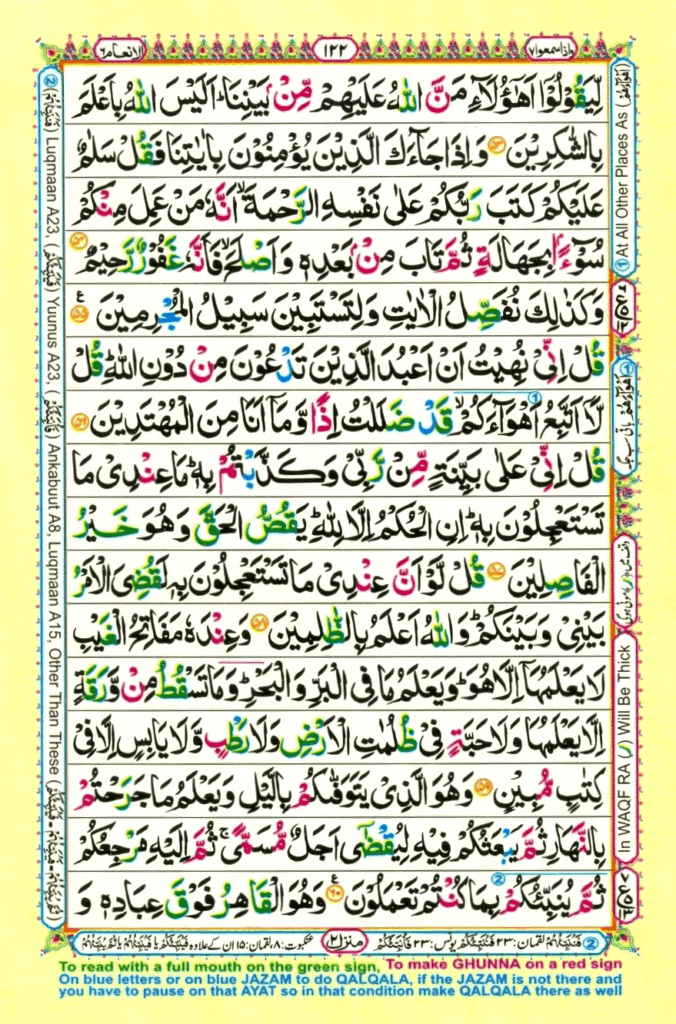 الانعام ٦
١٢٢
واذا سمعوا ٧
لِّيَقُوْلُوْۤا اَهٰۤؤُلَآءِ مَنَّ اللّٰهُ عَلَيْهِمْ مِّنْۢ بَيْنِنَا ؕ اَلَيْسَ اللّٰهُ بِاَعْلَمَ
بِالشّٰكِرِيْنَ ﴿۵۳﴾ وَاِذَا جَآءَكَ الَّذِيْنَ يُؤْمِنُوْنَ بِاٰيٰتِنَا فَقُلْ سَلٰمٌ
عَلَيْكُمْ كَتَبَ رَبُّكُمْ عَلٰى نَفْسِهِ الرَّحْمَةَ ۙ اَنَّهٗ مَنْ عَمِلَ مِنْكُمْ
سُوْٓءًۢا بِجَهَالَةٍ ثُمَّ تَابَ مِنْۢ بَعْدِهٖ وَاَصْلَحَ ۙ فَاَنَّهٗ غَفُوْرٌ رَّحِيْمٌ ﴿۵۴﴾
وَكَذٰلِكَ نُفَصِّلُ الْاٰيٰتِ وَلِتَسْتَبِيْنَ سَبِيْلُ الْمُجْرِمِيْنَ ﴿۵۵﴾
قُلْ اِنِّيْ نُهِيْتُ اَنْ اَعْبُدَ الَّذِيْنَ تَدْعُوْنَ مِنْ دُوْنِ اللّٰهِ ؕ قُلْ
لَّاۤ اَتَّبِعُ اَهْوَآءَكُمْ ۙ قَدْ ضَلَلْتُ اِذًا وَّمَاۤ اَنَا مِنَ الْمُهْتَدِيْنَ ﴿۵۶﴾
قُلْ اِنِّيْ عَلٰى بَيِّنَةٍ مِّنْ رَّبِّيْ وَكَذَّبْتُمْ بِهٖ ؕ مَا عِنْدِيْ مَا
تَسْتَعْجِلُوْنَ بِهٖ ؕ اِنِ الْحُكْمُ اِلَّا لِلّٰهِ ؕ يَقُصُّ الْحَقَّ وَهُوَ خَيْرُ
الْفٰصِلِيْنَ ﴿۵۷﴾ قُلْ لَّوْ اَنَّ عِنْدِيْ مَا تَسْتَعْجِلُوْنَ بِهٖ لَقُضِيَ الْاَمْرُ
بَيْنِيْ وَبَيْنَكُمْ ؕ وَاللّٰهُ اَعْلَمُ بِالظّٰلِمِيْنَ ﴿۵۸﴾ وَعِنْدَهٗ مَفَاتِحُ الْغَيْبِ
لَا يَعْلَمُهَاۤ اِلَّا هُوَ ؕ وَيَعْلَمُ مَا فِي الْبَرِّ وَالْبَحْرِ ؕ وَمَا تَسْقُطُ مِنْ وَّرَقَةٍ
اِلَّا يَعْلَمُهَا وَلَا حَبَّةٍ فِيْ ظُلُمٰتِ الْاَرْضِ وَلَا رَطْبٍ وَّلَا يَابِسٍ اِلَّا فِيْ
كِتٰبٍ مُّبِيْنٍ ﴿۵۹﴾ وَهُوَ الَّذِيْ يَتَوَفّٰىكُمْ بِالَّيْلِ وَيَعْلَمُ مَا جَرَحْتُمْ
بِالنَّهَارِ ثُمَّ يَبْعَثُكُمْ فِيْهِ لِيُقْضٰۤى اَجَلٌ مُّسَمًّى ۚ ثُمَّ اِلَيْهِ مَرْجِعُكُمْ
ثُمَّ يُنَبِّئُكُمْ بِمَا كُنْتُمْ تَعْمَلُوْنَ ﴿۶۰﴾ وَهُوَ الْقَاهِرُ فَوْقَ عِبَادِهٖ وَ
① At All Other Places As
In WAQF RA (ر) Will Be Thick
② Luqmaan A23, Yuunus A23, Ankabuut A8, Luqmaan A15, Other Than These
منزل ٢
To read with a full mouth on the green sign, To make GHUNNA on a red sign
On blue letters or on blue JAZAM to do QALQALA, if the JAZAM is not there and
you have to pause on that AYAT so in that condition make QALQALA there as well